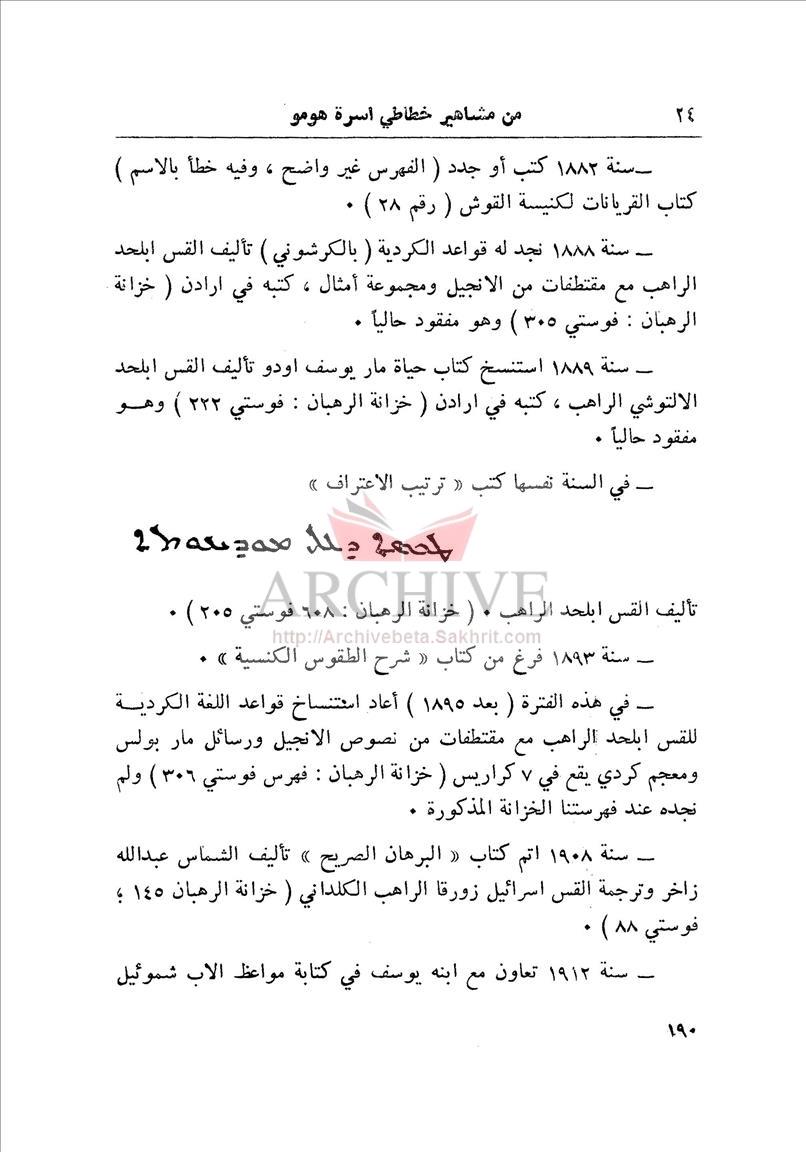 من مشاهير خطاطي اسرة هومو ٢٤
ـ سنة ١٨٨٢ كتب أو جدد ( الفهرس غير واضح ، وفيه خطأ بالاسم )
كتاب القريانات لكنيسة القوش ( رقم ٢٨ ) ٠
ـ سنة ١٨٨٨ نجد له قواعد الكردية ( بالكرشوني ) تأليف القس ابلحد
الراهب مع مقتطفات من الانجيل ومجموعة أمثال ، كتبه في ارادن ( خزانة
الرهبان : فوستي ٣٠٥ ) وهو مفقود حالياً ٠
ـ سنة ١٨٨٩ استنسخ كتاب حياة مار يوسف اودو تأليف القس ابلحد
الالتوشي الراهب ، كتبه في ارادن ( خزانة الرهبان : فوستي ٢٢٢ ) وهـو
مفقود حالياً ٠
ـ في السنة نفسها كتب « ترتيب الاعتراف »
ܛܟܣܐ ܕܥܠ ܡܘܕܝܢܘܬܐ
ARCHIVE
تأليف القس ابلحد الراهب ٠ ( خزانة الرهبان : ٦٠٨ فوستي ٢٠٥ ) ٠
http://Archivebeta.Sakhrit.com
ـ سنة ١٨٩٣ فرغ من كتاب « شرح الطقوس الكنسية » ٠
ـ في هذه الفترة ( بعد ١٨٩٥ ) أعاد استنساخ قواعد اللغة الكرديـة
للقس ابلحد الراهب مع مقتطفات من نصوص الانجيل ورسائل مار بولس
ومعجم كردي يقع في ٧ كراريس ( خزانة الرهبان : فهرس فوستي ٣٠٦ ) ولم
نجده عند فهرستنا الخزانة المذكورة ٠
ـ سنة ١٩٠٨ اتم كتاب « البرهان الصريح » تأليف الشماس عبدالله
زاخر وترجمة القس اسرائيل زورقا الراهب الكلداني ( خزانة الرهبان ١٤٥ ؛
فوستي ٨٨ ) ٠
ـ سنة ١٩١٢ تعاون مع ابنه يوسف في كتابة مواعظ الاب شموئيل
١٩٠